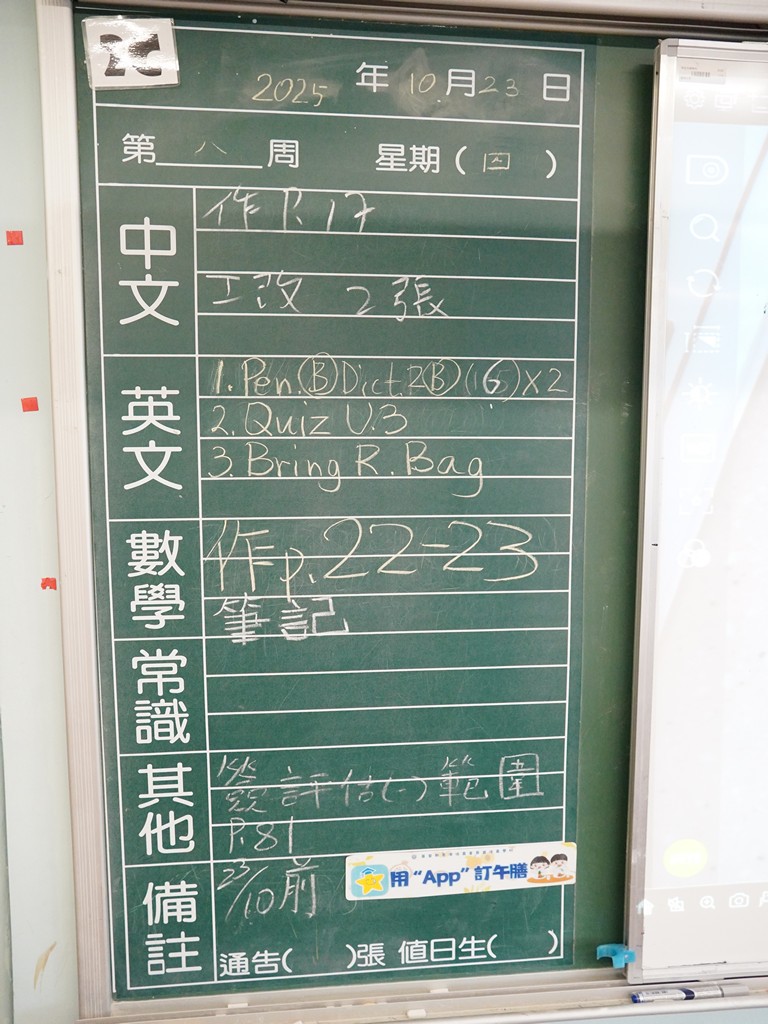 2C
2025 年 10 月 23 日
第 八 周 星期 ( 四 )
中文
作 P. 17
工改 2張
英文
1. Pen. Ⓑ Dict. R Ⓑ (16) x 2
2. Quiz U.3
3. Bring R. Bag
數學
作 p. 22-23
筆記
常識
其他
簽評估(一)範圍
P. 81
備註
23/10前
用 “App” 訂午膳
通告( )張 值日生( )